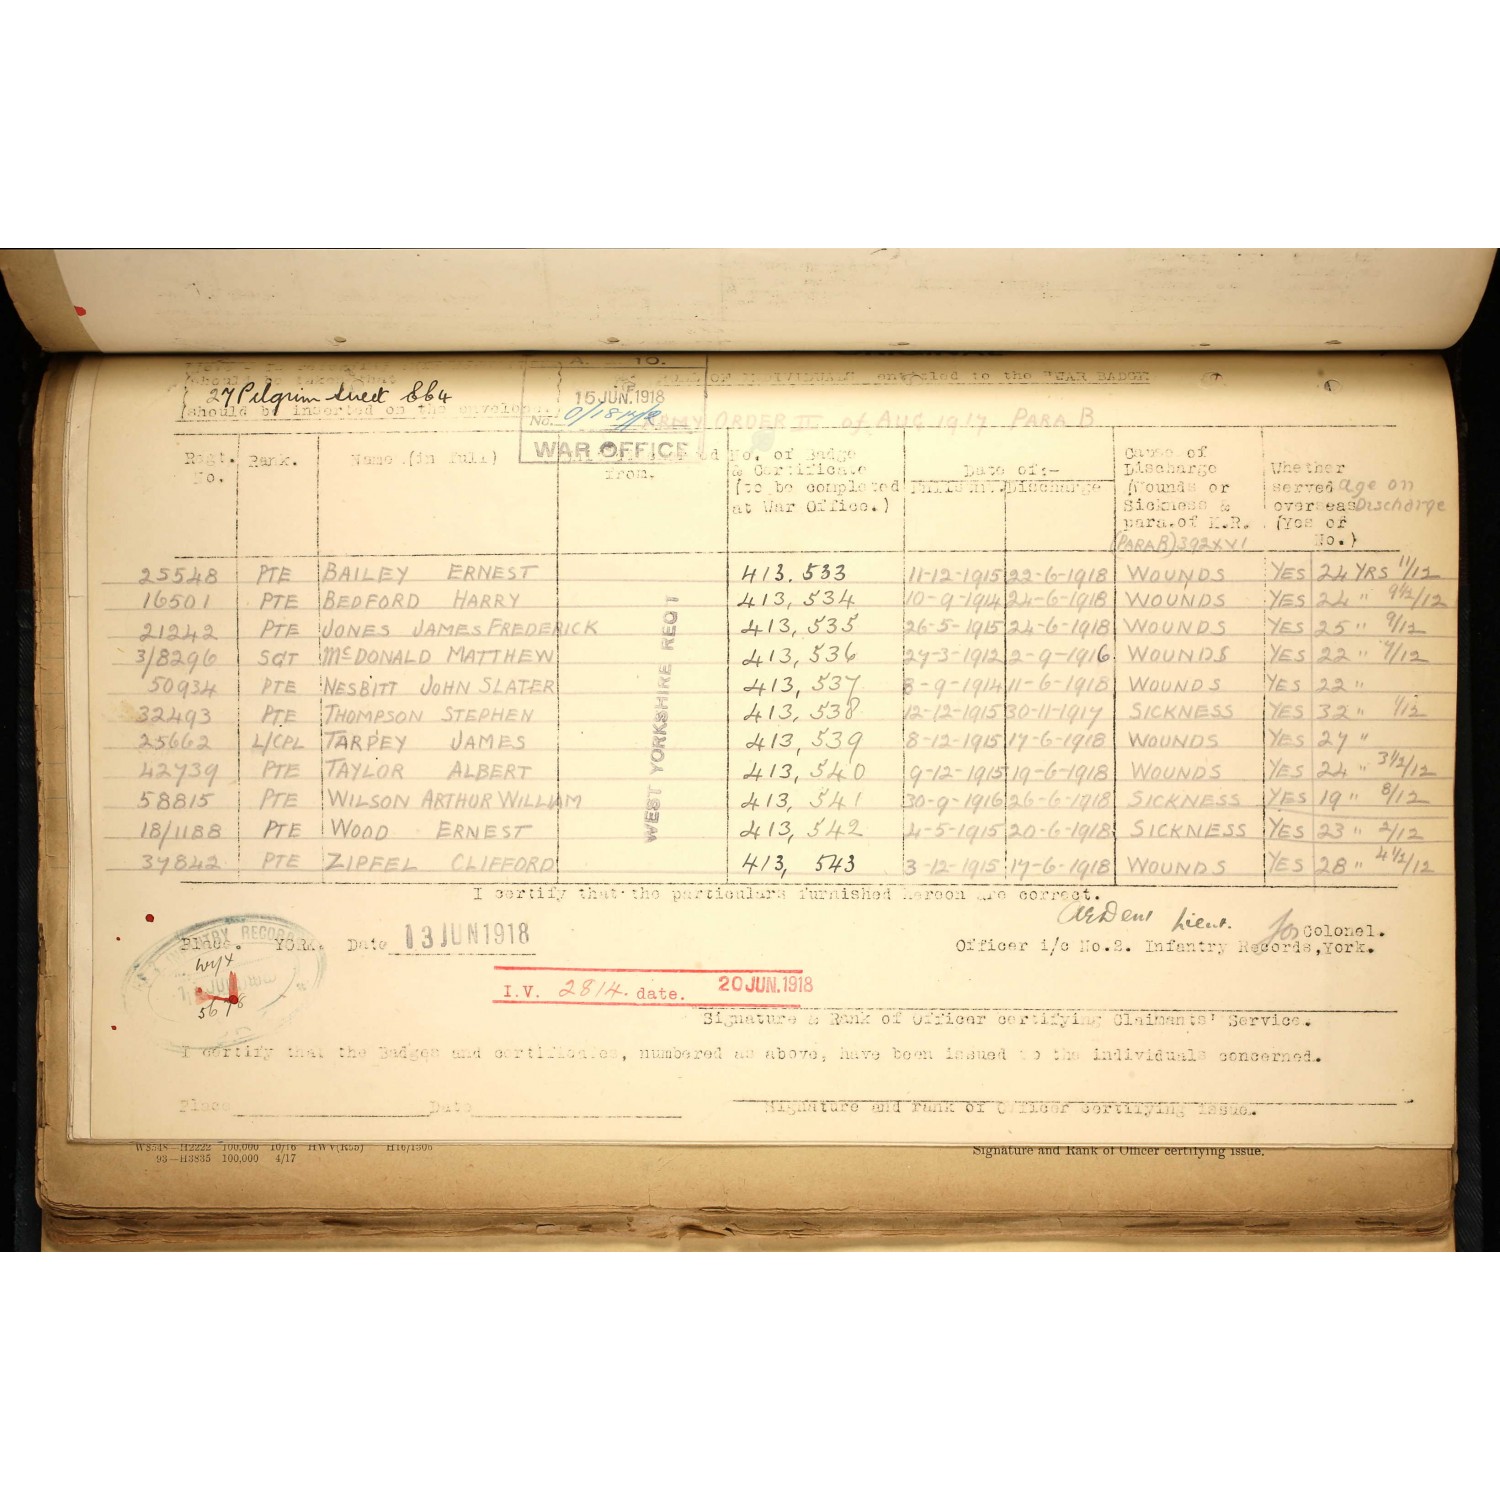 27 Pilgrim Street EC4
A. 10.
15 JUN. 1918
No. 0/18
WAR OFFICE
entitled to the "WAR BADGE
(should be inserted on the envelope.
ARMY ORDER III of AUG 1917 PARA B
Regt. No. Rank. Name (in full) from. No. of Badge & Certificate (to be completed at War Office.) Date of:- Enlistmt. Discharge Cause of Discharge (Wounds or Sickness & para. of K.R. (PARA B) 392 XVI Whether served overseas (Yes of No.) age on Discharge
25548 PTE BAILEY ERNEST 413.533 11-12-1915 22-6-1918 WOUNDS YES 24 YRS 11/12
16501 PTE BEDFORD HARRY 413,534 10-9-1914 24-6-1918 WOUNDS YES 24 " 9½/12
21242 PTE JONES JAMES FREDERICK 413,535 26-5-1915 24-6-1918 WOUNDS YES 25 " 9/12
3/8296 SGT McDONALD MATTHEW 413,536 27-3-1912 2-9-1916 WOUNDS YES 22 " 7/12
50934 PTE NESBITT JOHN SLATER 413,537 8-9-1914 11-6-1918 WOUNDS YES 22 "
32493 PTE THOMPSON STEPHEN 413,538 12-12-1915 30-11-1917 SICKNESS YES 32 " 1/12
25662 L/CPL TARPEY JAMES 413,539 8-12-1915 17-6-1918 WOUNDS YES 27 "
42739 PTE TAYLOR ALBERT 413,540 9-12-1915 19-6-1918 WOUNDS YES 24 " 3½/12
58815 PTE WILSON ARTHUR WILLIAM 413,541 30-9-1916 26-6-1918 SICKNESS YES 19 " 8/12
18/1188 PTE WOOD ERNEST 413,542 4-5-1915 20-6-1918 SICKNESS YES 23 " 2/12
37842 PTE ZIPFEL CLIFFORD 413,543 3-12-1915 17-6-1918 WOUNDS YES 28 " 4½/12
WEST YORKSHIRE REGT
I certify that the particulars furnished hereon are correct.
Lieut. for Colonel.
Place. YORK. Date 13 JUN 1918
Officer i/c No.2. Infantry Records, York.
I.V. 2814. date. 20 JUN. 1918
Signature & Rank of Officer certifying Claimants' Service.
I certify that the Badges and certificates, numbered as above, have been issued to the individuals concerned.
Place Date
Signature and rank of Officer certifying issue.
W8548—H2222 100,000 10/16 HWV(R55) H16/1306
93—H3835 100,000 4/17
Signature and Rank of Officer certifying issue.